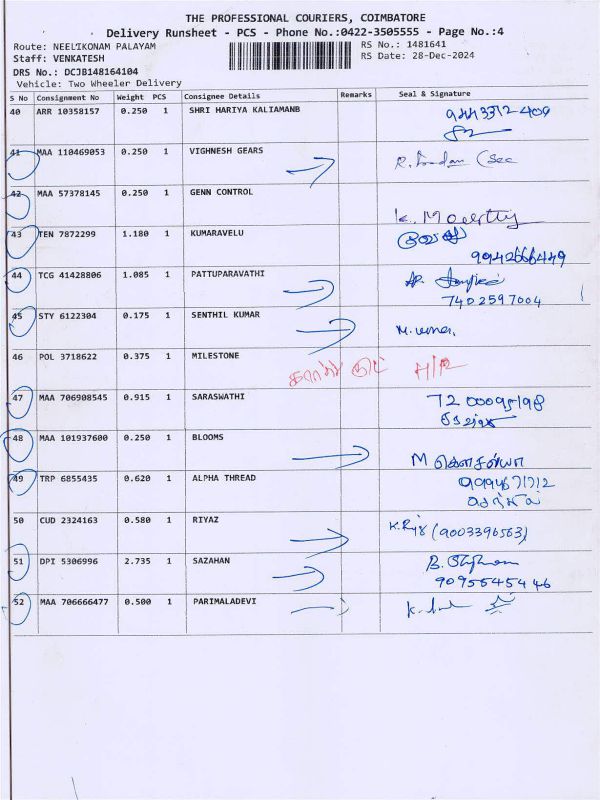 THE PROFESSIONAL COURIERS, COIMBATORE
Delivery Runsheet - PCS - Phone No.:0422-3505555 - Page No.:4
Route: NEELIKONAM PALAYAM RS No.: 1481641
Staff: VENKATESH RS Date: 28-Dec-2024
DRS No.: DCJB148164104
Vehicle: Two Wheeler Delivery
S No Consignment No Weight PCS Consignee Details Remarks Seal & Signature
40 ARR 10358157 0.250 1 SHRI HARIYA KALIAMANB
41 MAA 110469053 0.250 1 VIGHNESH GEARS
42 MAA 57378145 0.250 1 GENN CONTROL
K. Moorthy
43 TEN 7872299 1.180 1 KUMARAVELU
44 TCG 41428806 1.085 1 PATTUPARAVATHI
7402597004
45 STY 6122304 0.175 1 SENTHIL KUMAR
46 POL 3718622 0.375 1 MILESTONE
47 MAA 706908545 0.915 1 SARASWATHI
48 MAA 101937600 0.250 1 BLOOMS
M கௌசல்யா
49 TRP 6855435 0.620 1 ALPHA THREAD
50 CUD 2324163 0.580 1 RIYAZ
(9003396563)
51 DPI 5306996 2.735 1 SAZAHAN
52 MAA 706666477 0.500 1 PARIMALADEVI